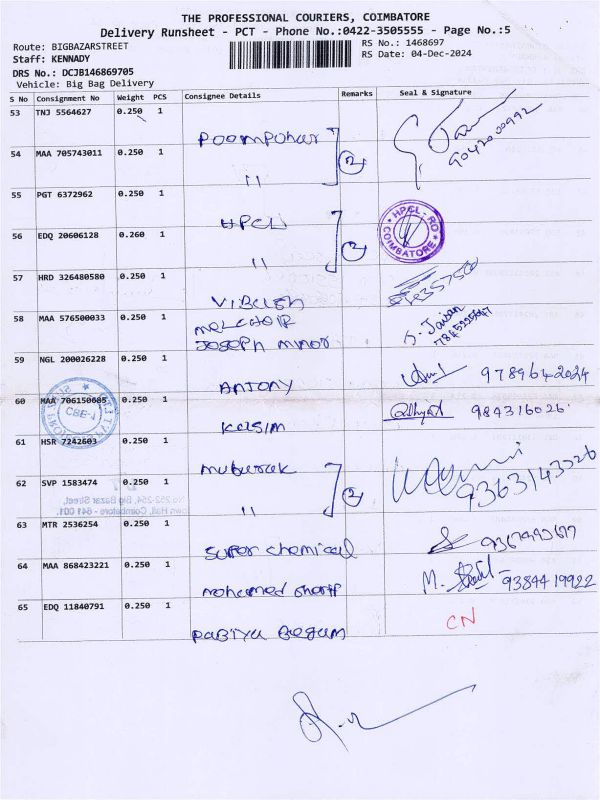 THE PROFESSIONAL COURIERS, COIMBATORE
Delivery Runsheet - PCT - Phone No.:0422-3505555 - Page No.:5
Route: BIGBAZARSTREET
RS No.: 1468697
Staff: KENNADY
RS Date: 04-Dec-2024
DRS No.: DCJB146869705
Vehicle: Big Bag Delivery
S No Consignment No Weight PCS Consignee Details Remarks Seal & Signature
53 TNJ 5564627 0.250 1 Poompuhar
9042000992
54 MAA 705743011 0.250 1 " 2
55 PGT 6372962 0.250 1 HPCL
HPCL-RO COIMBATORE
56 EDQ 20606128 0.260 1 " 2
57 HRD 326480580 0.250 1 Vibush
58 MAA 576500033 0.250 1 Melchoir
Joseph Minor
S. Jaison
59 NGL 200026228 0.250 1 Antony 9789642024
60 MAA 706150605 0.250 1 Kalsim 984316026
CBE-1
61 HSR 7242603 0.250 1 Mubarak
62 SVP 1583474 0.250 1 " 2 9363143026
No.252-254, Big Bazar Street,
Town Hall, Coimbatore - 641 001.
63 MTR 2536254 0.250 1 Super chemical
64 MAA 868423221 0.250 1 Mohamed Shariff M. 9384419922
65 EDQ 11840791 0.250 1 Rabiya Begum CN